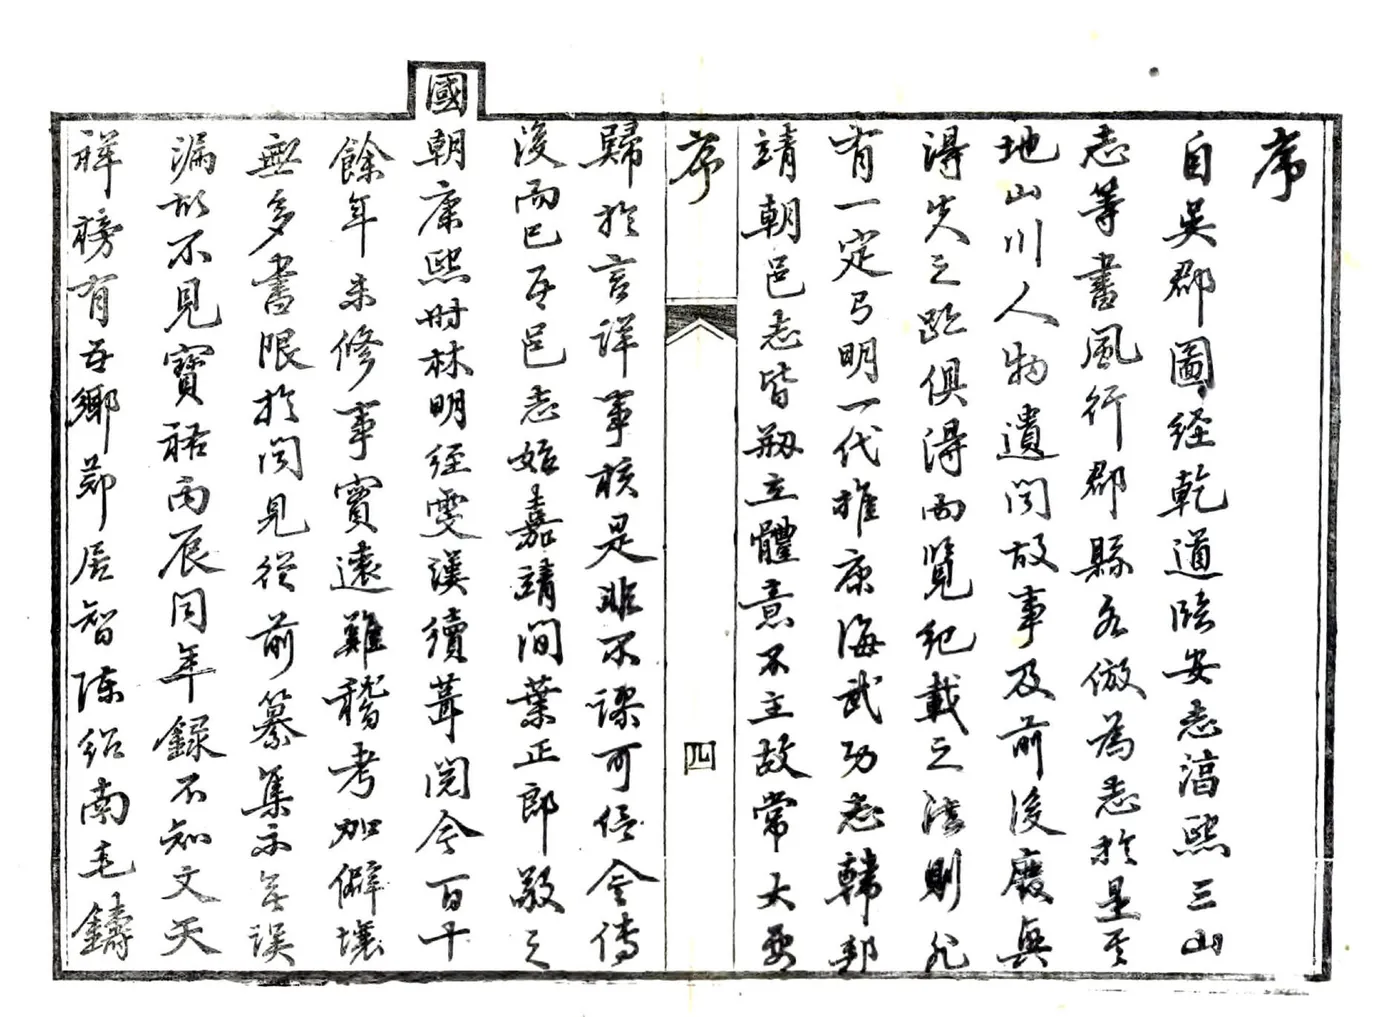 序
自吳郡圖經乾道臨安志淳熙三山
志等書風行郡縣各倣為志於是土
地山川人物遺聞故事及前後廢興
得失之跡俱得而覽紀載之法則凡
有一定乃明一代推康海武功志韓邦
靖朝邑志皆剏立體意不主故常大要
序
四
歸於言詳事核是非不謬可信今傳
後而已吾邑志始嘉靖間葉正郎敬之
國朝康熙時林明經雯漢續葺閱今百十
餘年未修事實遠難稽考加僻壤
無多書限於聞見從前纂集亦無誤
漏故不見寶祐丙辰同年錄不知文天
祥榜有吾鄉節居智陳紹南毛鑄